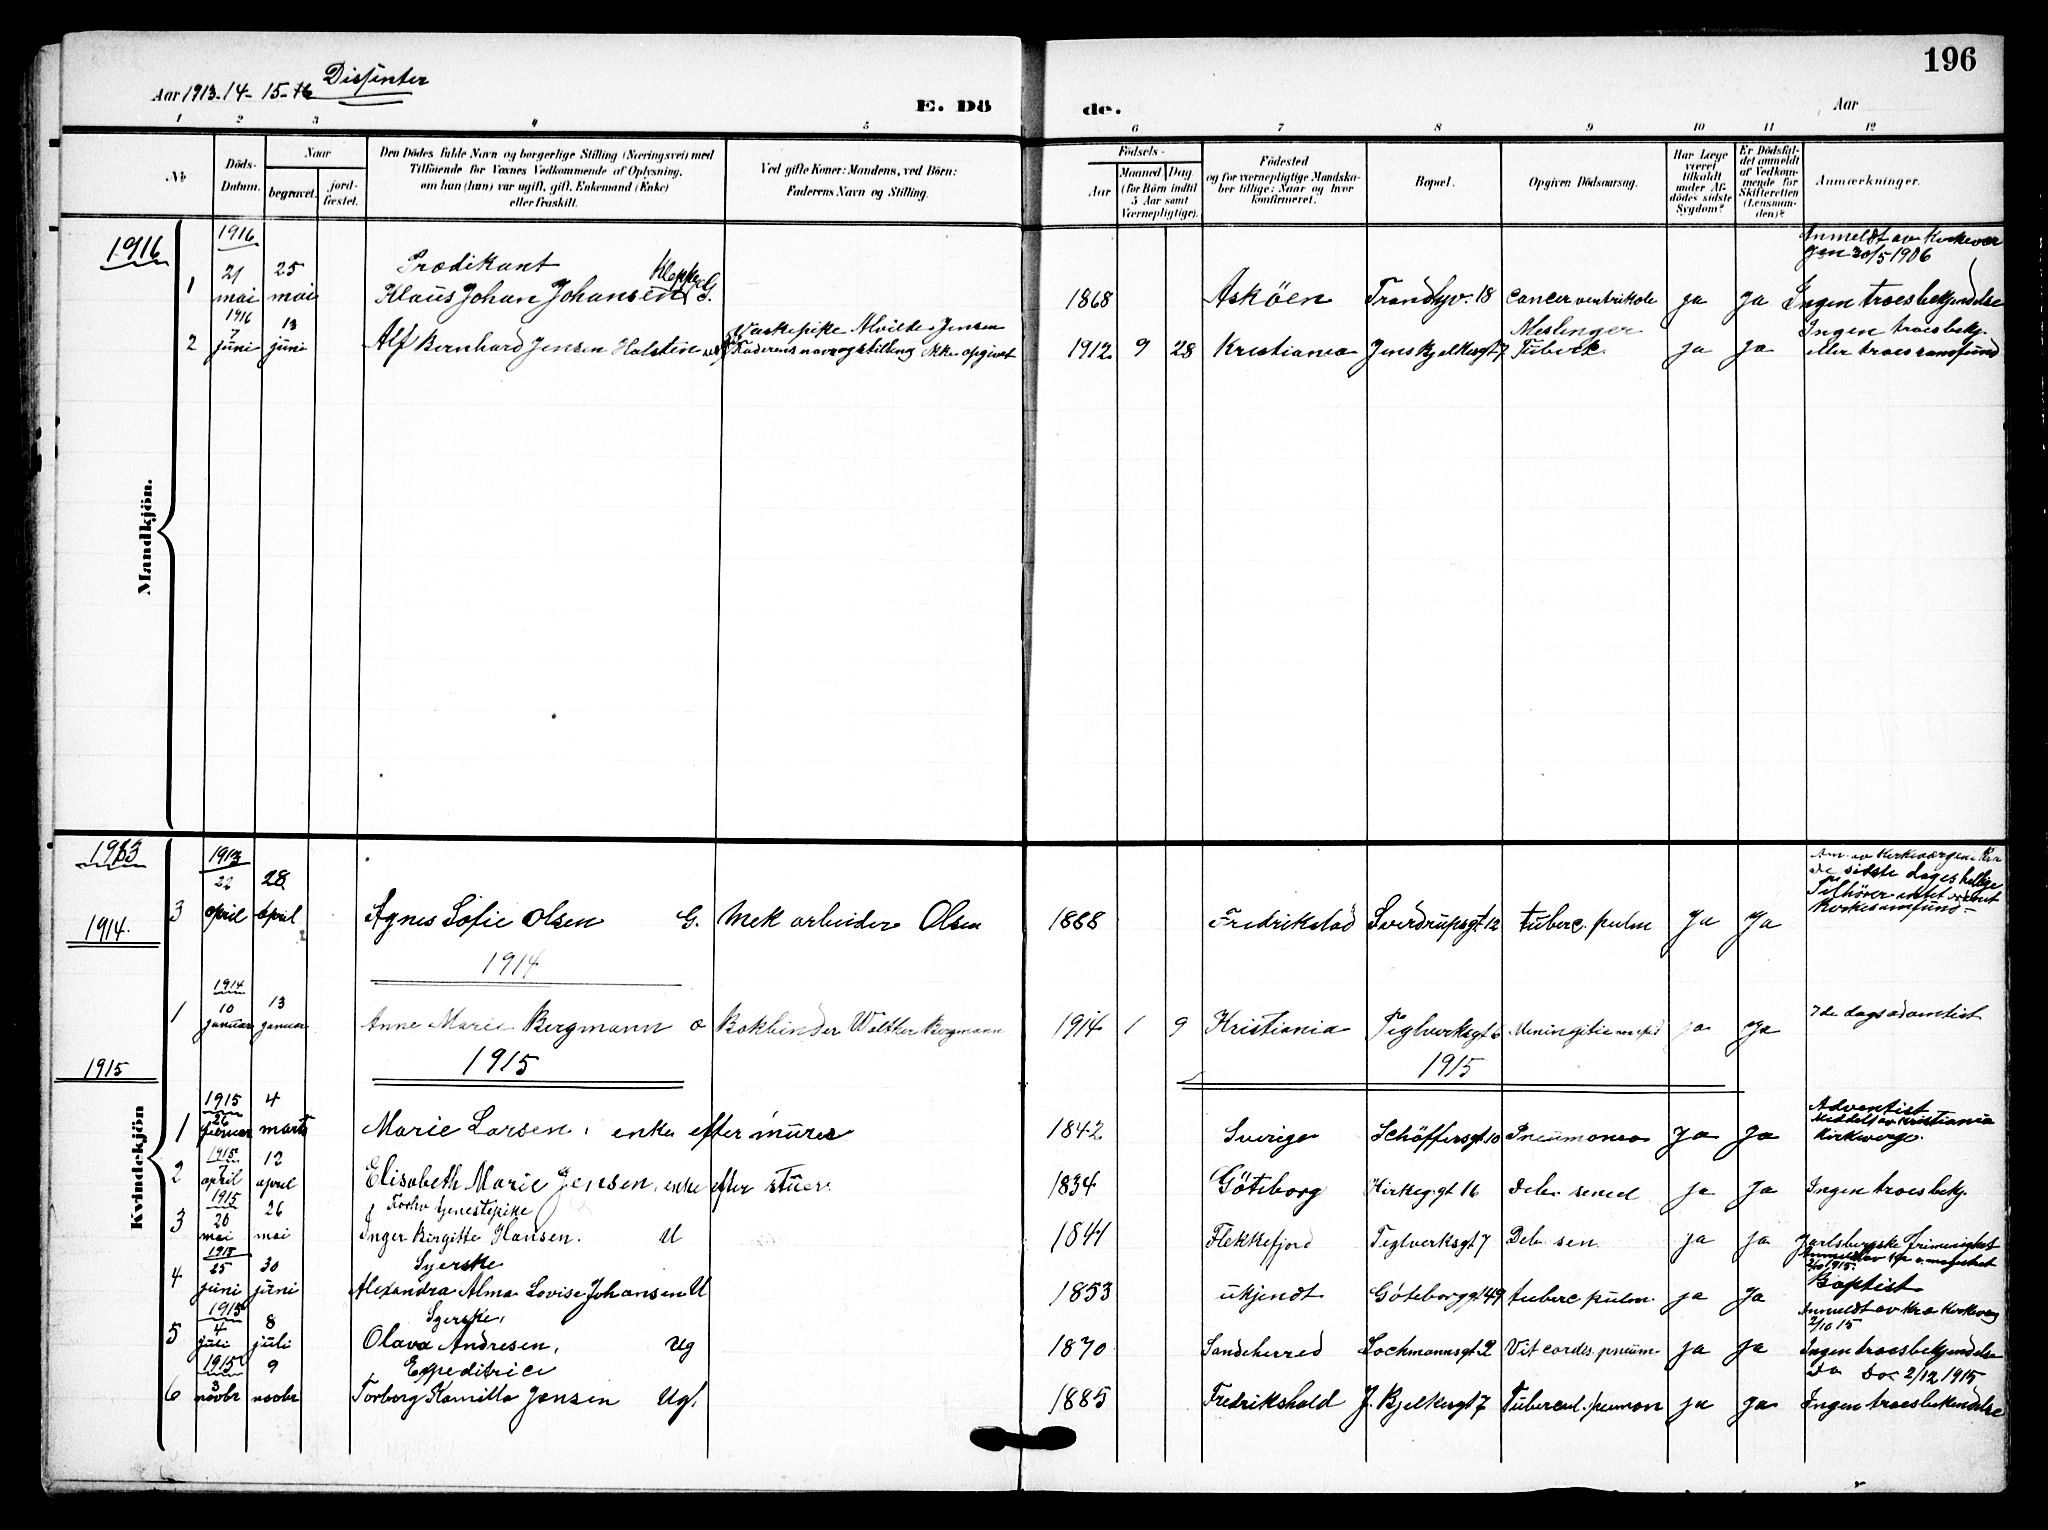 196
Aar 1913-14-15-16 Dissenter
E. Dö
de.
Aar
1 2 3 4 5 6 7 8 9 10 11 12
№
Döds-Datum.
Naar
begravet.
jord-fæstet.
Den Dödes fulde Navn og borgerlige Stilling (Næringsvei) med
Tilföiende for Voxnes Vedkommende af Oplysning,
om han (hun) var ugift, gift, Enkemand (Enke)
eller fraskilt.
Ved gifte Koner: Mandens, ved Börn:
Faderens Navn og Stilling.
Födsels-
Aar
Maaned
Dag
(for Börn indtil
5 Aar samt
Værnepligtige).
Födested
og for værnepligtige Mandska-
ber tillige: Naar og hvor
konfirmeret.
Bopæl.
Opgiven Dödsaarsag.
Har Læge
været
tilkaldt
under Af-
dödes sidste
Sygdom?
Er Dödsfal-
det anmeldt
af Vedkom-
mende for
Skifteretten
(Lensman-
den)?
Anmærkninger.
Mandkjön.
1916
1916
Anmeldt av Kirkevær
gen 20/5 1906
1 21 mai 25 mai Prædikant Klaus Johan Johansen Kleppe G. 1868 Asköen 18 Cancer ventrikole ja ja Ingen troesbekjendelse
1916
2 7 juni 13 juni Alf Bernhard Jensen Holstein Vaskepike Alvilde Jensen
Faderens navn og stilling ikke opgivet 1912 9 28 Kristiania Jens Bjelkesgt 7 Tuberk. ja ja Ingen troesbekj.
eller troessamfund
1913
1913
3 22 april 28 april Agnes Sofie Olsen G. Mek arbeider Olsen 1888 Fredrikstad Sverdrupsgt 12 tuberc. pulm ja ja
de sidste dages hellige
Kirkesamfund
1914
1914
1914
1 10 januar 13 januar Anne Marie Bergmann Bokbinder Walther Bergmann 1914 1 9 Kristiania Teglverksgt 6 Meningitis ja ja 7de dags adventist
1915
1915
1915
Kvindekjön
1915
1 26 februar 4 marts Marie Larsen, enke efter murer 1842 Sverige Schöffersgt 10 Pneumonia ja ja Adventist
Meddelt av Kristiania
Kirkeverge
1915
2 7 april 12 april Elisabeth Marie Jensen, enke efter stuer 1834 Göteborg Kirkeg. gt 16 Deb. senil ja ja Ingen troesbekj.
1915
3 20 mai 26 mai Forhv tjenestepike
Inger Birgitte Hansen. U 1841 Flekkefjord Teglverksgt 7 Deb sen. ja ja Jarlsbergske frimenighet
1915
4 25 juni 30 juni Syerske
Alexandra Alma Lovise Johansen U 1853 ukjendt Göteborggt 49 tuberc pulm. ja ja Baptist
Anmeldt av Kra Kirkeverg
2/10 15
1915
5 4 juli 8 juli Syerske,
Olava Andresen, Ug 1870 Sandeherred Lockmannsgt 2 Vit cordis, pneum- ja ja Ingen troesbekjendelse
1915
Do Do 2/12 1915
6 3 novbr 9 novbr Expeditrice
Torborg Kamilla Jensen Ug. 1885 Fredrikshald J. Bjelkesgt 7 Tubercul. pulmon ja ja Ingen troesbekjendelse